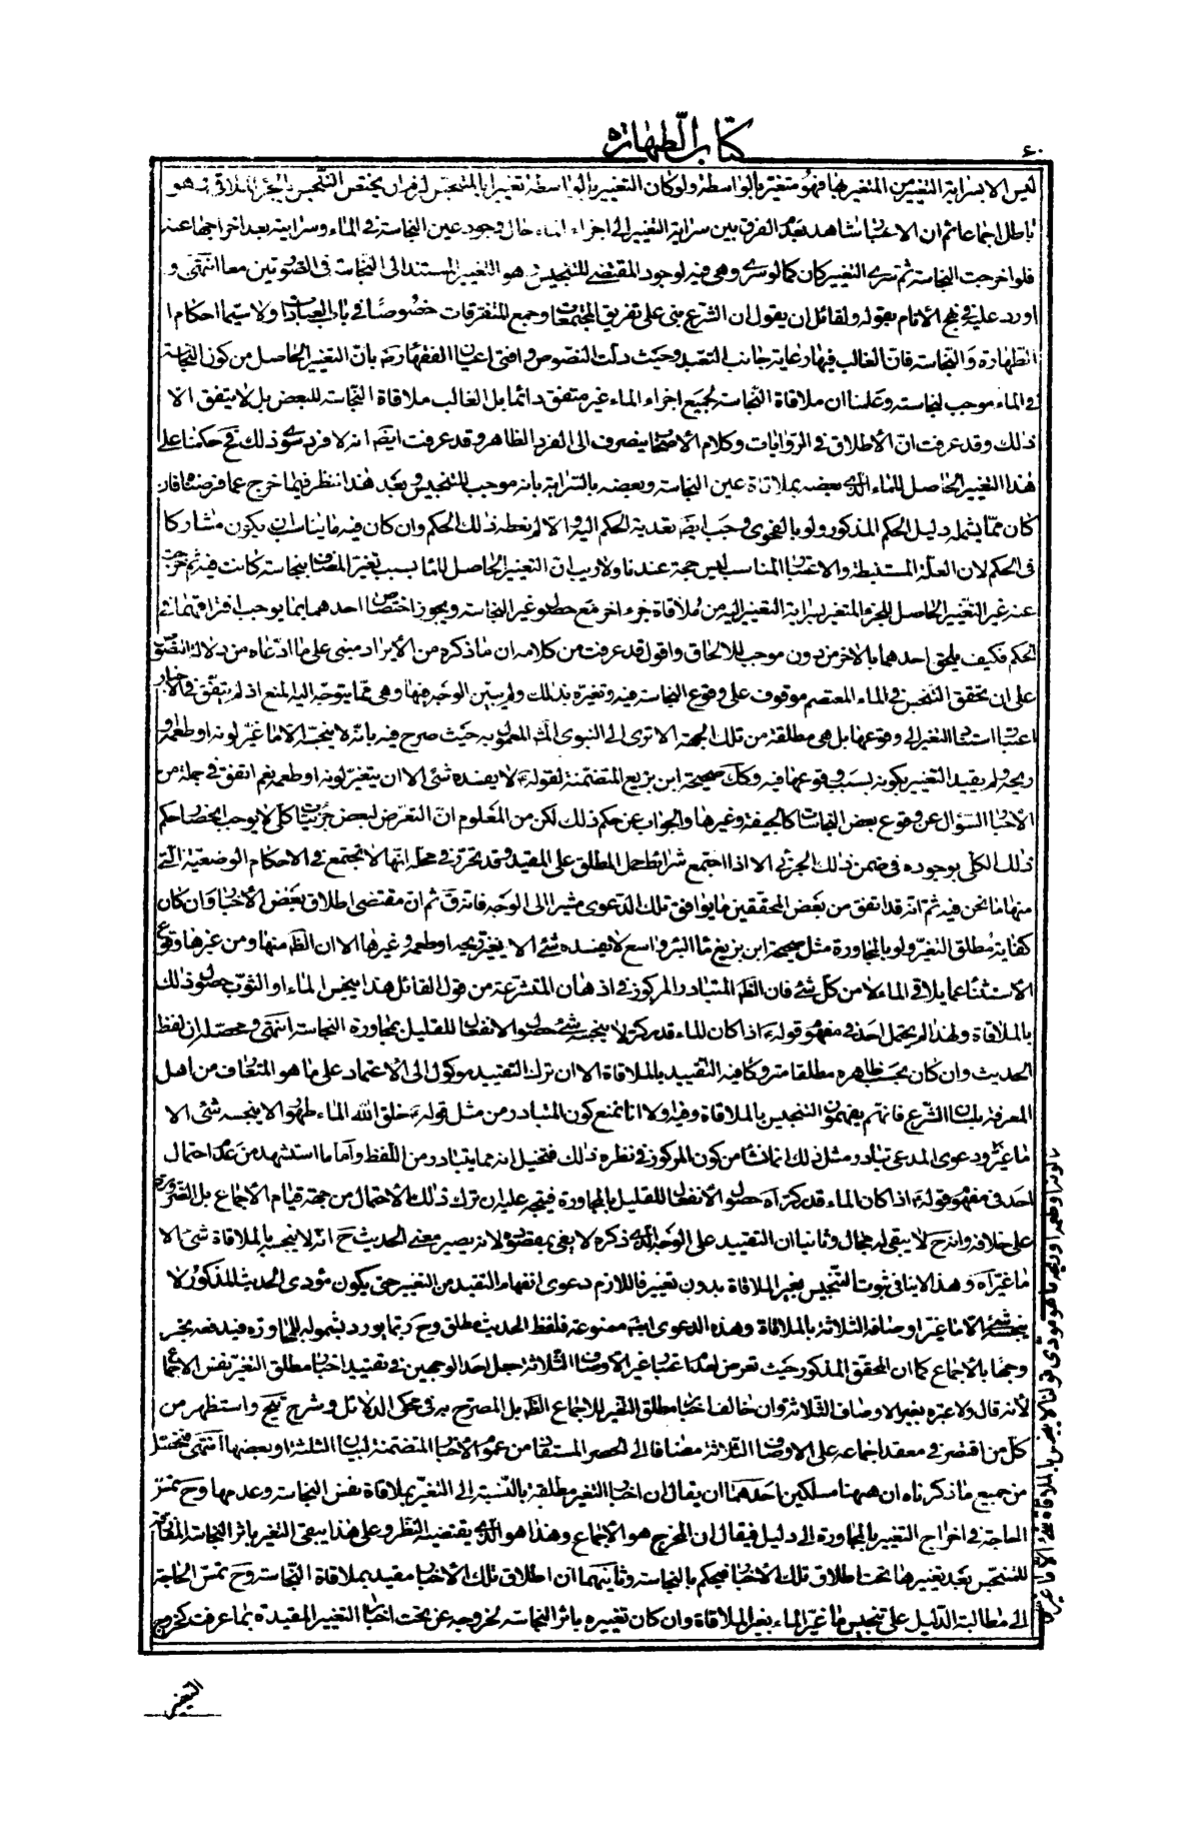 كتاب الطهارة
٤٠
ليس الا بسراية التغير من المتغير بها فهو متغير بالواسطة ولو كان التغيير بالواسطة تغييرا بالمتنجس لزم ان يختص التنجيس بالجزء الملاقى وهو
باطل اجماعا ثم ان الاعتبار شاهد بعدم الفرق بين سراية التغيير الى اجزاء الماء حال وجود عين النجاسة في الماء وسرايته بعد اخراجها عنه
فلو اخرجت النجاسة ثم سرى التغيير كان كما لو سرى وهى فيه لوجود المقتضى للتنجيس هو التغيير المستند الى النجاسة في الصورتين معا انتهى و
اورد عليه في نهج الأنام بقوله ولقائل ان يقول ان الشرع مبنى على تفريق المجتمعات وجمع المتفرقات خصوصًا في باب العبادات ولا سيّما احكام ا
الطّهارة والنجاسة فان الغالب فيها رعاية جانب التعبد وحيث دلت النصوص وافتى اعيان الفقهاء ره بانّ التغيير الحاصل من كون النجاسة
في الماء موجب لنجاسته وعلمنا ان ملاقاة النّجاسة لجميع اجزاء الماء غير متفق دائما بل الغالب ملاقاة النّجاسة للبعض بل لا يتفق الّا
ذلك وقد عرفت انّ الأطلاق في الرّوايات وكلام الأصحاب ينصرف الى الفرد الظاهر وقد عرفت ايضا انه لا فرد سوى ذلك فح حكمنا على
هذا التغيير الحاصل للماء الذى بعضه بملاقاة عين النجاسة وبعضه بالسّراية بانه موجب للتنجيس وبعد هذا ننظر فيما خرج عما فرضناه فان
كان ممّا يشمله دليل الحكم المذكور ولو بالفحوى وجب ايضا تعدية الحكم اليه والّا لم نعطه ذلك الحكم وان كان فيه ما يناسب ان يكون مشاركا
فى الحكم لان العلّة المستنبطة والاعتبار المناسب ليس حجة عندنا ولا ريب انّ التغيير الحاصل للماء بسبب تغير المضاف بنجاسة كانت فيه ثم خرجت
عنه غير التغيير الحاصل للجزء المتغير بسراية التغيير اليه من ملاقاة جزء اخر مع حصول غير النجاسة ويجوز اختصاص احدهما بما يوجب افتراقهما في
الحكم فكيف يلحق احدهما بالاخر من دون موجب للالحاق واقول قد عرفت من كلامه ان ما ذكره من الأيراد مبنى على ما ادّعاه من دلالة النصّ
على ان تحقق التّنجس في الماء المعتصم موقوف على وقوع النجاسة فيه وتغيّره بذلك ولم يبيّن الوجه فيها وهى ممّا يتوجّه اليه المنع اذ لم يتّفق في الاخبار
اعتبار استناد التغير الى وقوعها بل هى مطلقة من تلك الجهة الا ترى الى النبوى المعمول به حيث صرح فيه بانّه لا ينجسّه الّا ما غيّر لونه او طعمه او
ريحه ولم يقيد التغيير بكونه بسبب وقوعها فيه وكك صحيحة ابن بزيع المتضمنة لقوله ع لا يفسده شئ الا ان يتغير لونه او طعمه نعم اتفق في جملة من
الأخبار السّؤال عن وقوع بعض النجاسات كالجيفة وغيرها والجواب عن حكم ذلك لكن من المعلوم انّ التعرّض لبعض جزئيات كلّى لا يوجب انحصار حكم
ذلك الكلّى بوجوده في ضمن ذلك الجزئى الا اذا اجتمع شرائط حمل المطلق على المقيد وقد تحرّر في محله انّها لا تجتمع في الاحكام الوضعيّة الّتى
منها ما نحن فيه ثم انّه قد اتفق من بعض المحققين ما يوافق تلك الدّعوى مشيرا الى الوجه فانه ره قال ثم انّ مقتضى اطلاق بعض الأخبار وان كان
كفاية مطلق التغيّر ولو بالمجاورة مثل صحيحة ابن بزيع ماء البئر واسع لا يفسده شئ الا ان يغير ريحه او طعمه وغيرها الا ان الظ منها ومن غيرها وقوع
الاستثناء عما يلاقى الماء لا من كلّ شئ فان الظ المتبادر المركوز في اذهان المتشرّعة من قول القائل هذا ينجس الماء او الثّوب حصول ذلك
بالملاقاة ولهذا لم يحتمل احد في مفهوم قوله ع اذا كان الماء قدر كرّ لا ينجسه شئ حصول الانفعال للقليل بمجاورة النجاسة انتهى وحصله ان لفظ
الحديث وان كان بحسب ظاهره مطلقا متروكا فيه التقييد بالملاقاة الا ان ترك التقييد موكول الى الأعتماد على ما هو المتعارف من اهل
المعرفة بلسان الشّرع فانهم يفهمون التنجيس بالملاقاة وفيه اولا انا نمنع كون المتبادر من مثل قوله ع خلق الله الماء طهورا لا ينجسه شئ الا
ما غيّر ودعوى المدعى تبادر مثل ذلك انما نشأ من كون المركوز في نظره ذلك فتخيل انه مما يتبادر من اللّفظ وأما ما استشهد من عدم احتمال
احد فى مفهوم قوله ع اذا كان الماء قدر كرّ اه حصول الأنفعال للقليل بالمجاورة فيتجه عليه ان ترك ذلك الاحتمال من جهة قيام الأجماع بل الضّرورة
على خلافه وانه ح لا يبقى له مجال وثانيا ان التقييد على الوجه الذى ذكره لا يفى بمقصوده لانه يصير معنى الحديث ح انّه لا ينجسه بالملاقاة شئ الا
ما غيّر اه وهذا لا ينافى ثبوت التّنجيس بغير الملاقاة بدون تغيير فاللازم دعوى انفهام التقيد من التغيير حتى يكون مؤدى الحديث المذكور لا
ينجسه شئ الا ما غيّر اوصافه الثّلاثة بالملاقاة وهذه الدعوى ايضا ممنوعة فلفظ الحديث مطلق وح ربّما يورد بشموله للمجاورة فيدفعه بخر
وجها بالأجماع كما ان المحقق المذكور حيث تعرض لعدم اعتبار غير الأوصاف الثلاثة جعل احد الوجهين في تقييد اخبار مطلق التغيّر نفس الأجماع
لأنه قال ولا عبرة بغير الاوصاف الثّلاثة وان خالف اخبار مطلق التغيّر للاجماع الظ بل المصرّح به في محكى الدلائل وشرح نهج واستظهر من
كلّ من اقتصر في معقد اجماعه على الاوصاف الثّلاثة مضافا الى الحصر المستفاد من عموم الأخبار المتضمنة لبيان الثلثة او بعضها انتهى فتحصّل
من جميع ما ذكرناه ان هيهنا مسلكين احدهما ان يقال ان اخبار التغير مطلقة بالنّسبة الى التغيّر بملاقاة نفس النجاسة وعدمها وح تمسّ
الحاجة في اخراج التغيير بالمجاورة الى دليل فيقال ان المخرج هو الأجماع وهذا هو الذى يقتضيه النظر وعلى هذا يبقى التغير باثر النجاسة الملاقى
للمتنجّس بعد تغييرها تحت اطلاق تلك الأخبار فيحكم بالنجاسة وثانيهما ان اطلاق تلك الأخبار مقيد بملاقاة النّجاسة وح تمسّ الحاجة
الى مطالبة الدّليل على تنجيس ما غيّر الماء بغير الملاقاة وان كان تغييره باثر النجاسة لخروجه عن تحت اخبار التغيير المقيدة بما عرفت كخروج
ما لونه او طعمه او ريحه ما هو مؤدى قولنا لا ينجس بالملاقاة شئ الا ما غيره
التغير